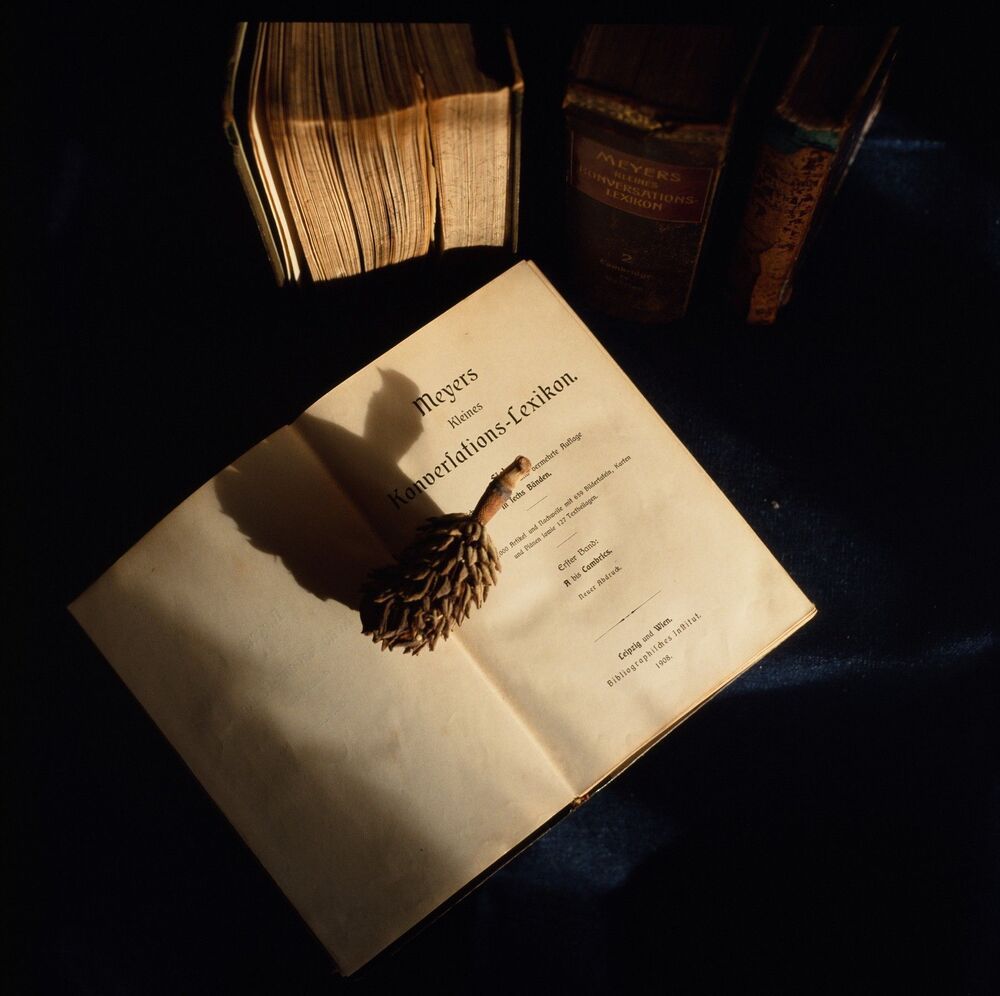 MEYERS
KLEINES
KONVERSATIONS-
LEXIKON
2
Cambridge
Meyers
Kleines
Konverſations-Lexikon.
vermehrte Auflage
in ſechs Bänden.
000 Artikel und Nachweiſe mit 639 Bildertafeln, Karten
und Plänen ſowie 127 Textbeilagen.
Erſter Band:
A bis Cambrics.
Neuer Abdruck.
Leipzig und Wien.
Bibliographiſches Inſtitut.
1908.